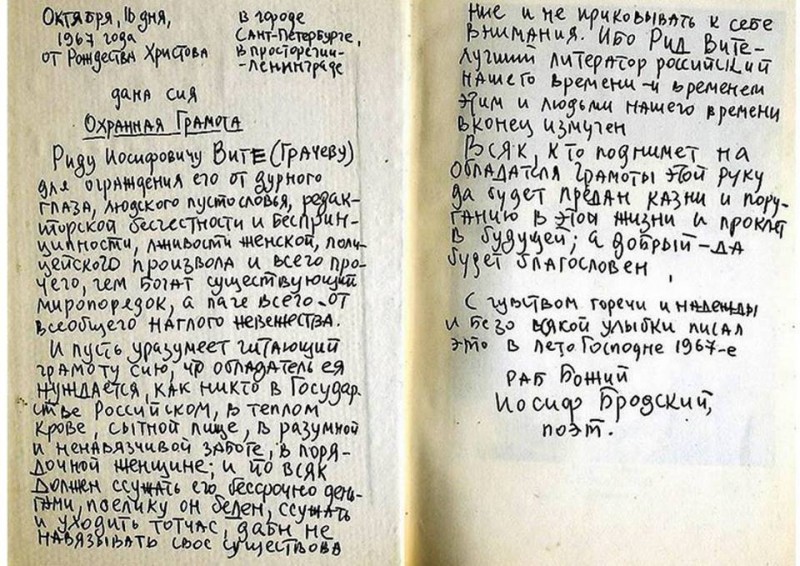 Октября, 16 дня,
1967 года
от Рождества Христова
в городе
Санкт-Петербурге,
в просторечии-
-Ленинграде
дана сия
Охранная Грамота
Риду Иосифовичу Вите (Грачеву)
для ограждения его от дурного
глаза, людского пустословья, редак-
торской бесчестности и беспри-
ципности, лживости женской, поли-
цейского произвола и всего про-
чего, чем богат существующий
миропорядок, а паче всего - от
всеобщего наглого невежества.
И пусть уразумеет читающий
грамоту сию, что обладатель ея
нуждается, как никто в Государ-
стве Российском, в теплом
крове, сытной пище, в разумной
и ненавязчивой заботе, в поря-
дочной женщине; и то всяк
должен ссужать его бессрочно день-
гами, поелику он беден, ссужать
и уходить тотчас, дабы не
навязывать свое существова
ние и не приковывать к себе
внимания. Ибо Рид Вите-
лучший литератор российский
нашего времени - и временем
этим и людьми нашего времени
вконец измучен
Всяк, кто поднимет на
обладателя грамоты этой руку
да будет предан казни и пору-
ганию в этой жизни и проклят
в будущей; а добрый - да
будет благословен.
С чувством горечи и надежды
и безо всякой улыбки писал
это в лето Господне 1967-е
раб Божий
Иосиф Бродский,
поэт.